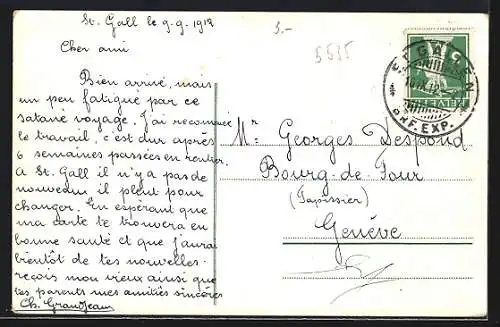 St. Gall le 9-9-1912
5.-
5535
Cher ami
Bien arrivé, mais
un peu fatigué par ce
satané voyage. J'ai recomencé
le travail, c'est dur après
6 semaines passées en rentier.
A St. Gall il n'y a pas de
nouveau il pleut pour
changer. En espérant que
ma carte te trouvera en
bonne santé et que j'aurai
bientôt de tes nouvelles.
reçois mon vieux ainsi que
tes parents mes amitiés sincères
Ch. Grandjean
Mr. Georges Despond
Bourg-de-Four
(Tapissier)
Genève
ST. GALLEN
BRF. EXP.
HELVETIA
5